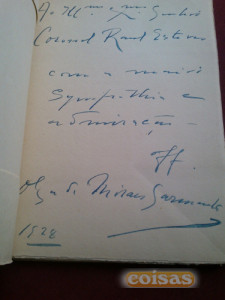 Ao Illmo e Exmo Senhor
Coronel Raul Esteves
com a maior
Sympathia e
admiração —
Off.
Olga de Moraes Sarmento
1928
coisas